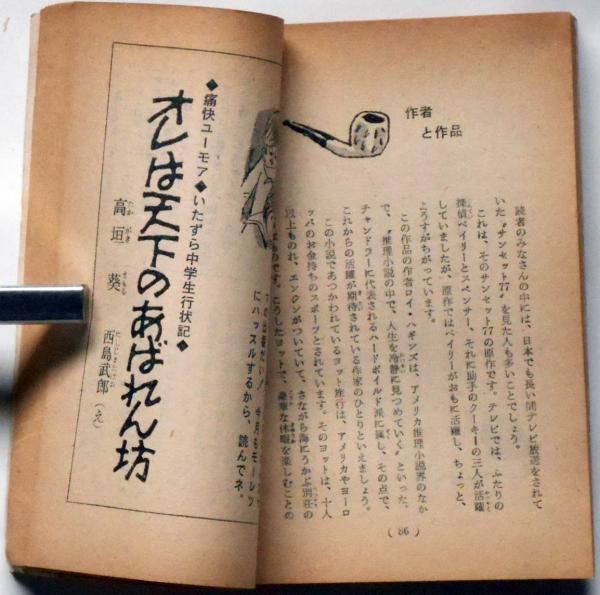 作者
と作品
読者のみなさんの中には、日本でも長い間テレビ放送をされて
いた〝サンセット77〟を見た人も多いことでしょう。
これは、そのサンセット77の原作です。テレビでは、ふたりの
探偵ベイリーとスペンサー、それに助手のクーキーの三人が活躍
していましたが、原作ではベイリーがおもに活躍し、ちょっと、
ようすがちがっています。
この作品の作者ロイ・ハギンズは、アメリカ推理小説界のなか
で、〝推理小説の中で、人生を冷静に見つめていく〟といった、
チャンドラーに代表されるハードボイルド派に属し、その点で、
これからの活躍が期待されている作家のひとりといえましょう。
この小説であつかわれているヨット旅行は、アメリカやヨーロ
ッパのお金持ちのスポーツとされています。そのヨットは、十人
以上ものれ、エンジンがついていて、さながら海にうかぶ別荘の
ようなものです。こうしたヨットで、豪華な休暇を楽しむことの
(86)
◆痛快ユーモア◆いたずら中学生行状記◆
オレは天下のあばれん坊
高垣 葵
西島武郎(え)
今月もモーレツ
にハッスルするから、読んでネ。